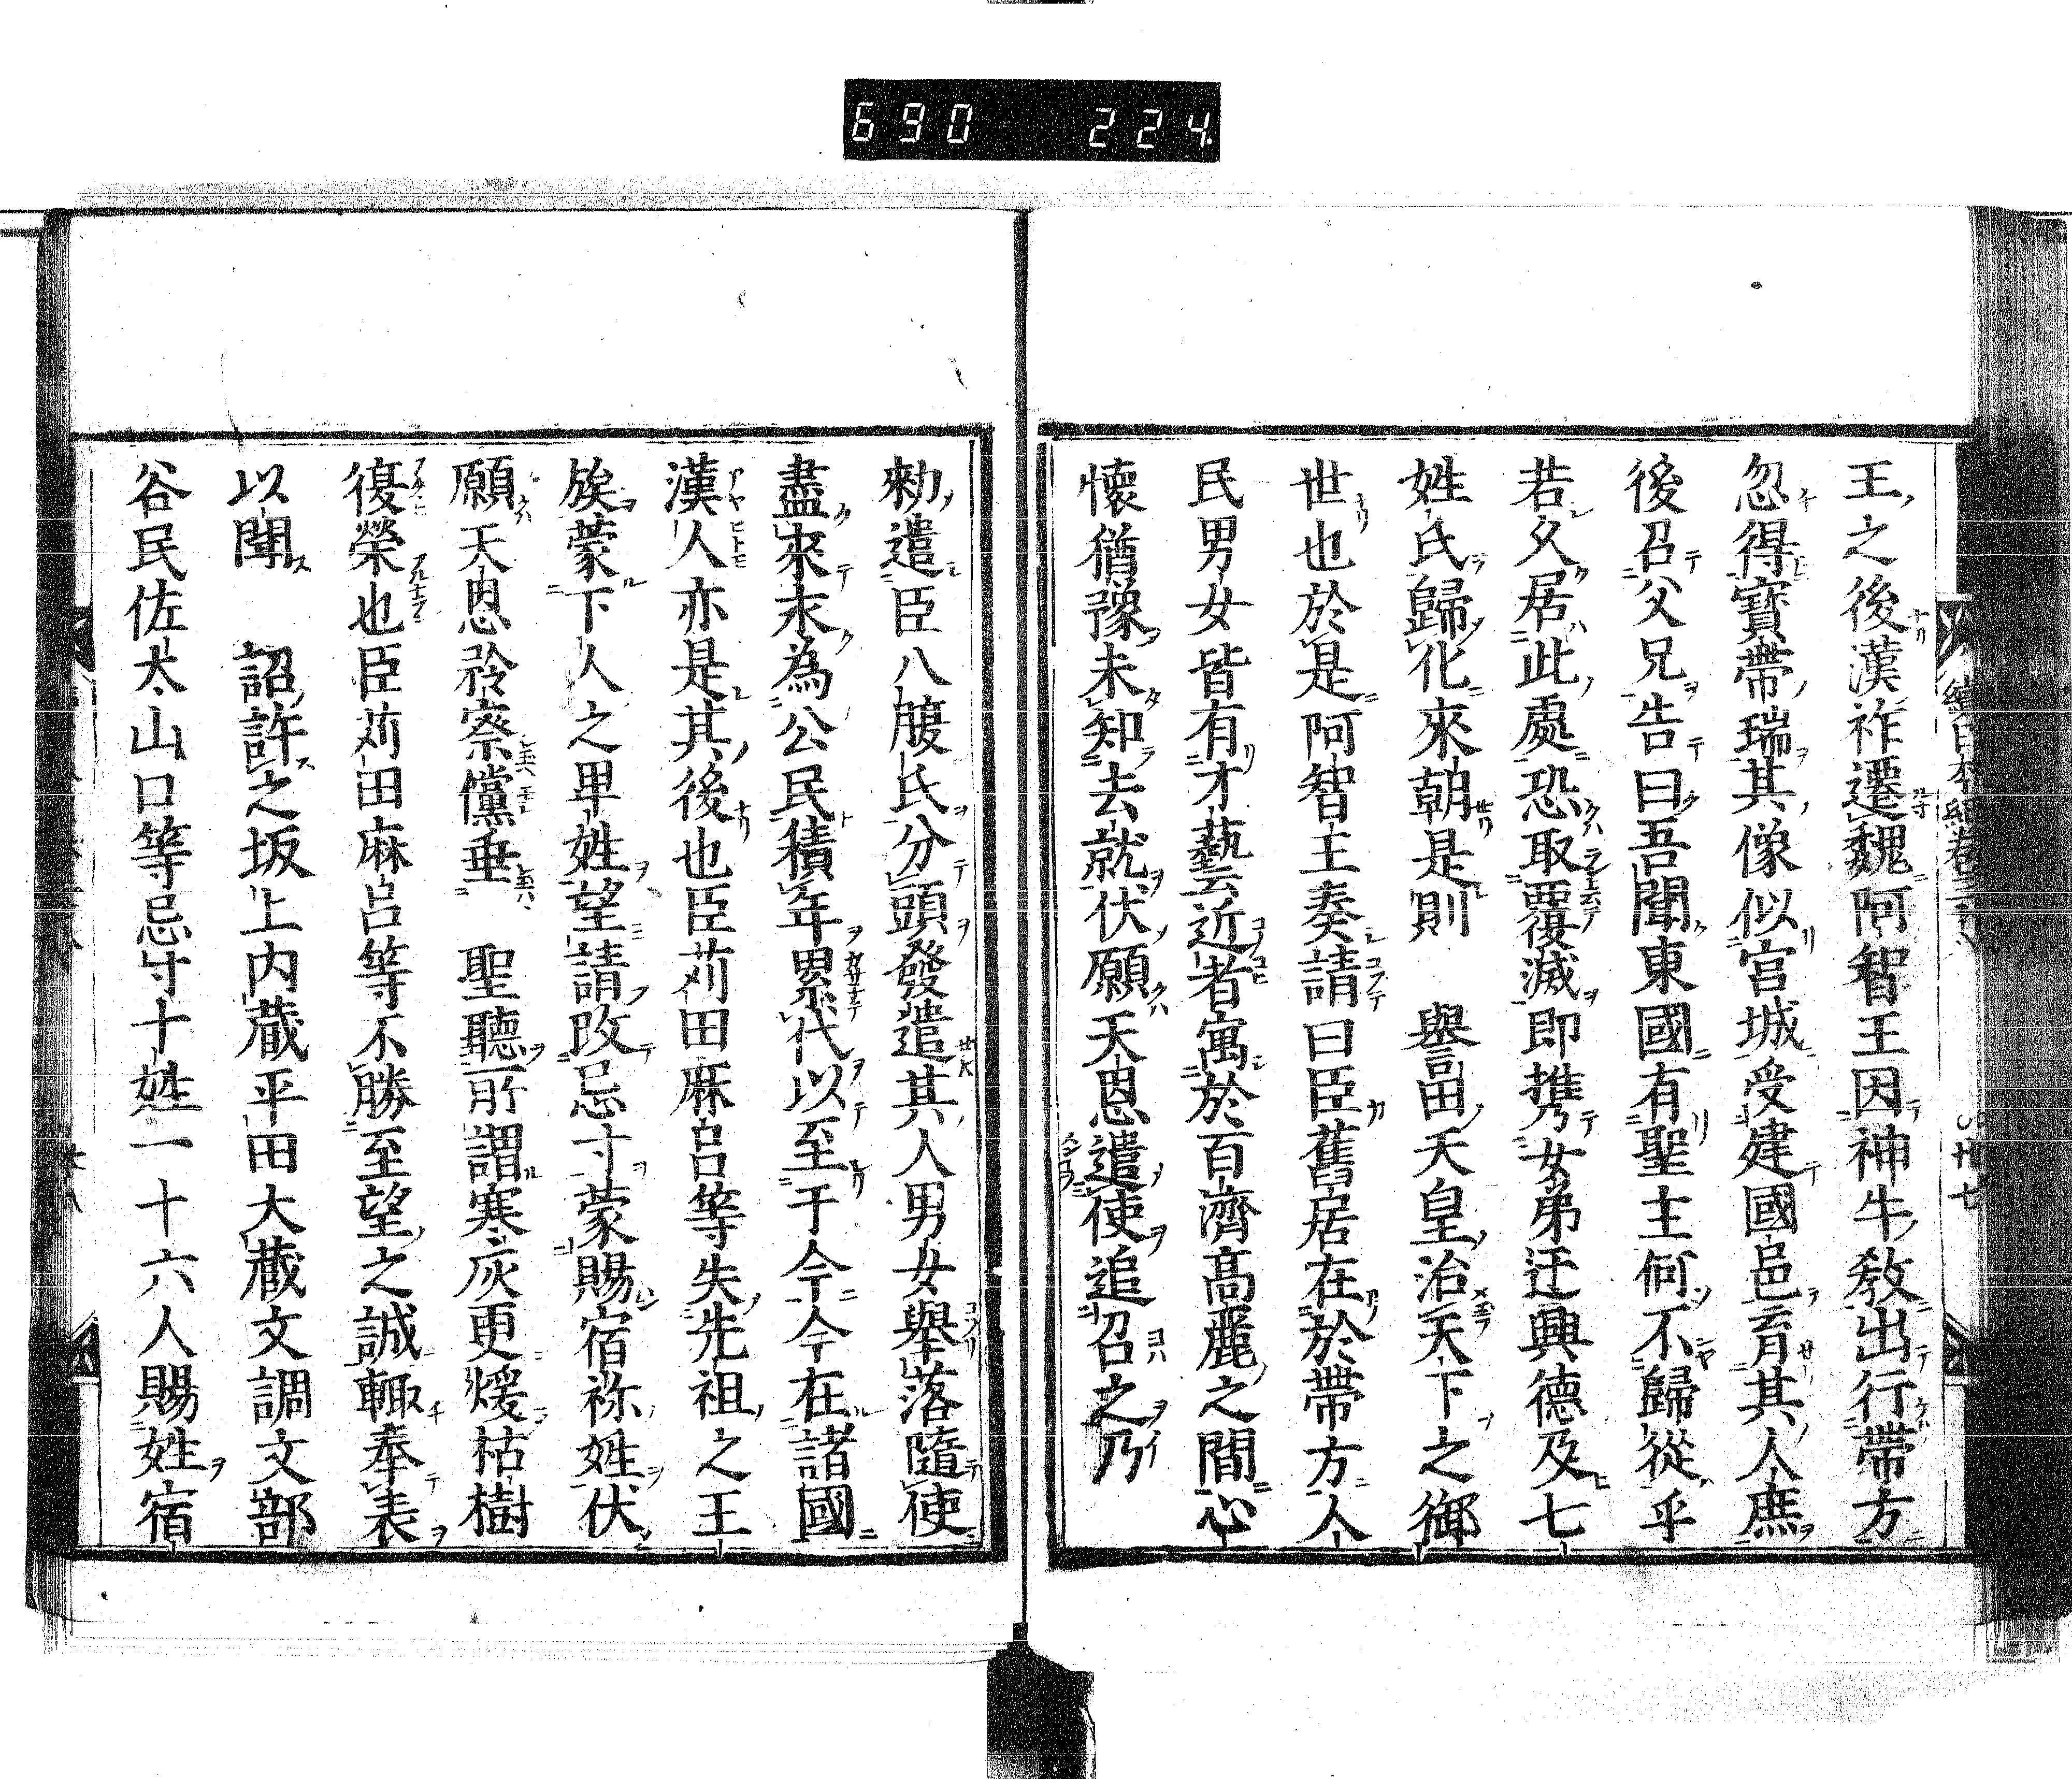 690 224
王之後漢祚遷魏阿智王因神牛教出行帶方
忽得寶帶瑞其像似宮城爰建國邑育其人庶
後召父兄告曰吾聞東國有聖主何不歸從乎
若久居此處恐取覆滅即携女弟迂興德及七
姓氏歸化來朝是則　譽田天皇治天下之御
世也於是阿智王奏請曰臣舊居在於帶方人
民男女皆有才藝云近者寓於百濟高麗之間心
懷猶豫未知去就伏願天恩遣使追召之乃
勑遣臣八腹氏分頭發遣其人男女舉落隨使
盡來末為公民積年累代以至于今今在諸國
漢人亦是其後也臣苅田麻呂等失先祖之王
族蒙下人之卑姓望請改忌寸蒙賜宿祢姓伏
願天恩矜察儻垂　聖聽所謂寒灰更煖枯樹
復榮也臣苅田麻呂等不勝至望之誠輙奉表
以聞　詔許之坂上内蔵平田大蔵文調文部
谷民佐太山口等忌寸十姓一十六人賜姓宿